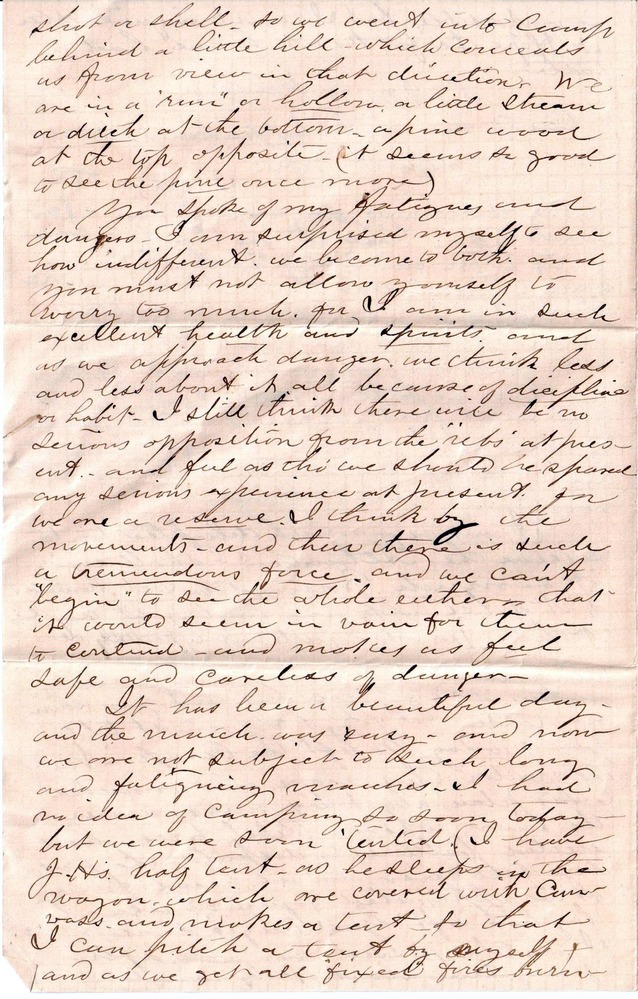 shot or shell - so we went into Camp
behind a little hill - which conceals
us from view in that direction. We
are in a "run" or hollow, a little stream
or ditch at the bottom - a pine wood
at the top opposite - (it seems so good
to see the pine once more)
You spoke of my fatigues and
dangers - I am surprised myself to see
how indifferent we become to both. and
you must not allow yourself to
worry too much. for I am in such
excellent health and spirits and
as we approach danger. we think less
and less about it all because of discipline
or habit - I still think there will be no
serious opposition from the "rebs" at pres-
ent. - and feel as tho' we should be spared
any serious experience at present for
we are a reserve. I think by the
movements - and then there is such
a tremendous force. and we can't
"begin" to see the whole either - that
it would seem in vain for them
to contend - and makes us feel
safe and careless of danger -
It has been a beautiful day -
and the march was easy - and now
we are not subject to such long
and fatigueing marches - I had
no idea of camping so soon today -
but we were soon "tented. (I have
J. H's. half tent - as he sleeps in the
wagon. which are covered with Can-
vass. and makes a tent - so that
I can pitch a tent by myself!
and as we get all "fixed" fires burn